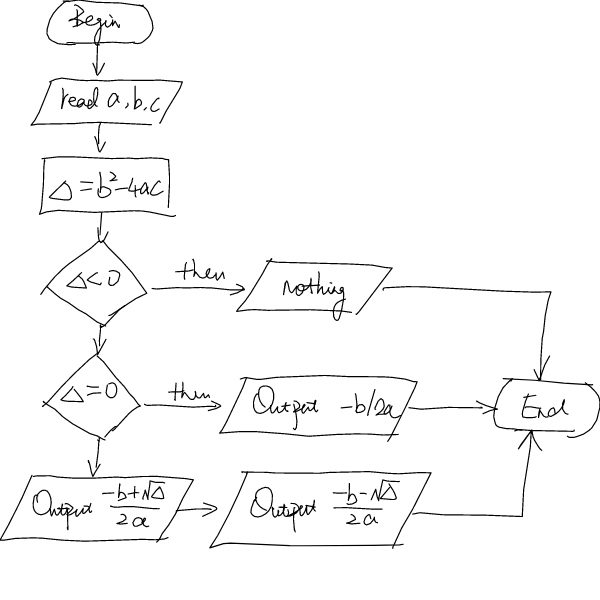 Begin
read a, b, c
△ = b² - 4ac
△ < 0
then
nothing
△ = 0
then
Output -b/2a
End
Output (-b+√△)/2a
Output (-b-√△)/2a